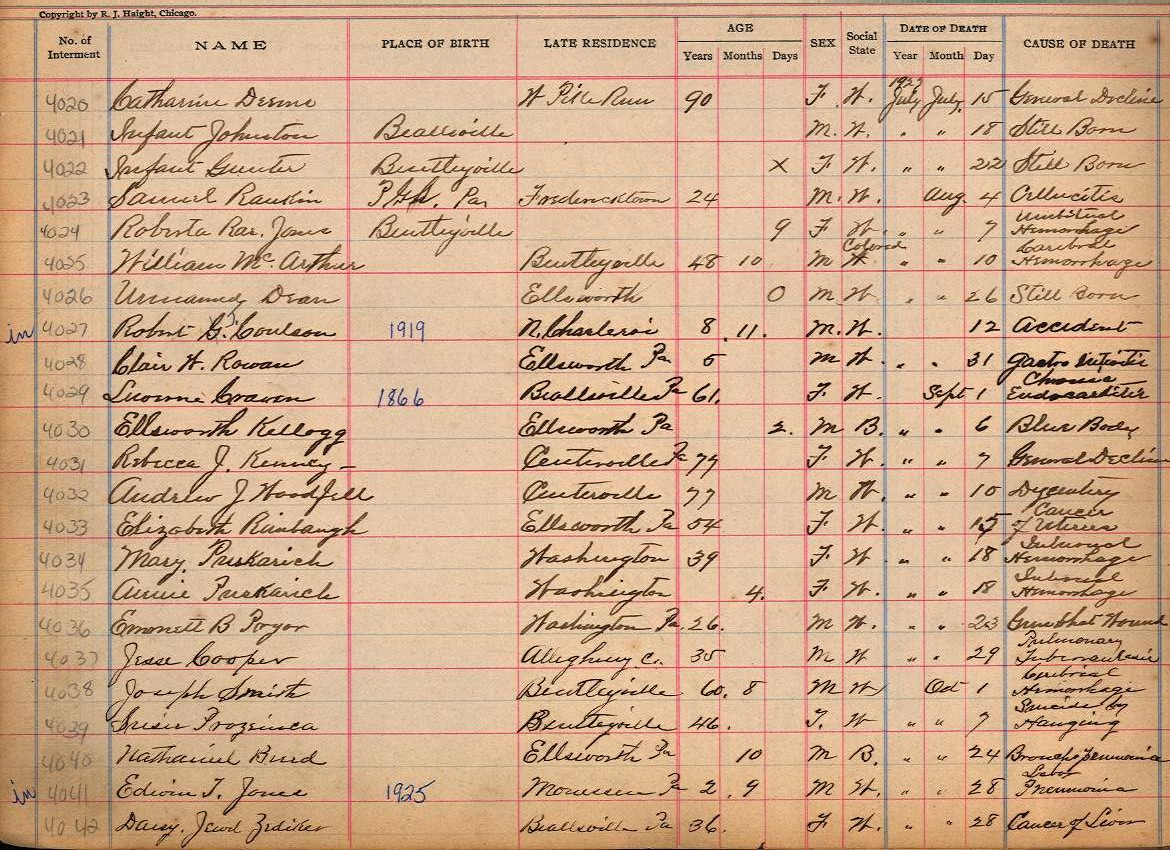 Copyright by R. J. Haight, Chicago.
No. of Interment NAME PLACE OF BIRTH LATE RESIDENCE AGE Years Months Days SEX Social State DATE OF DEATH Year Month Day CAUSE OF DEATH
4020 Catharine Deems W Pike Run 90 F. W. July July 15 General Decline
4021 Infant Johnston Beallsville M. W. " " 18 Still Born
4022 Infant Gunter Bentleyville X F W. " " 22 Still Born
4023 Samuel Rankin Pgh. Pa Fredericktown 24 M. W. Aug. 4 Cellucitis
4024 Roberta Rae. Jane Bentleyville 9 F W. " " 7 Umbilical Hemorhage
4025 William Mc. Arthur Bentleyville 48 10 M W. Colored " " 10 Cerebral Hemorrhage
4026 Unnamed Dean Ellsworth 0 M W. " " 26 Still Born
in 4027 Robert G. Coulson 1919 N. Charleroi 8 11. M. W. 12 Accident
4028 Clair H. Rowan Ellsworth Pa 5 M W. " " 31 Gastro
4029 Craven 1866 Beallsville Pa 61. F. W. Sept 1 Chronic Endocarditis
4030 Ellsworth Kellogg Ellsworth Pa 2. M B. " " 6 Blue Body
4031 Rebecca J. Kenney - Centerville Pa 77 F. W. " " 7 General Decline
4032 Andrew J Woodfill Centerville 77 M W. " " 10 Dycentery
4033 Elizabeth Rimbaugh Ellsworth Pa 54 F. W. " " 15 Cancer of Uterus
4034 Mary. Puskarich Washington 39 F. W. " " 18 Internal Hemorrhage
4035 Annie Puskarich Washington 4. F. W. " " 18 Internal Hemorrhage
4036 Emonett B Pryor Washington Pa. 26. M W. " " 23 Gunshot Wound
4037 Jesse Cooper Allegheny Co. 35 M W " " 29 Pulmonary Tuberculosis
4038 Joseph Smith Bentleyville 60. 8 M W Oct 1 Cerebral Hemorrhage
4039 Susie Bentleyville 46. F. W " " 7 Suicide by Hanging
4040 Nathaniel Burd Ellsworth Pa 10 M B. " " 24 Broncho Pneumonia
in 4041 Edwin T. Jones 1925 Monessen Pa 2. 9 M W. " " 28 Lobar Pneumonia
4042 Daisy. Jewel Zediker Beallsville Pa 36. F W. " " 28 Cancer of Liver